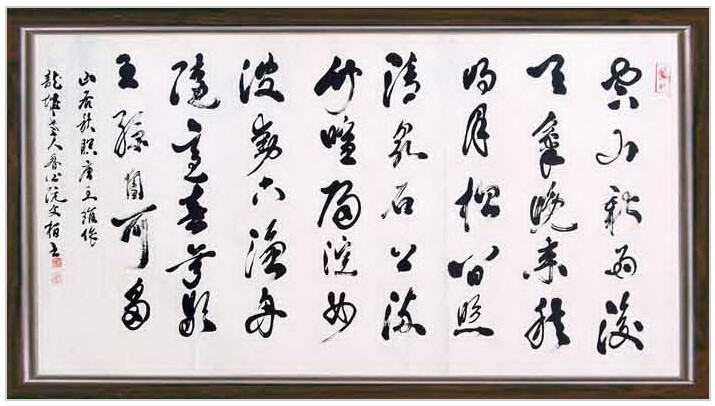 空山新雨後
天氣晚來秋
明月松間照
清泉石上流
竹喧歸浣女
波動下漁舟
隨意春芳歇
王孫自可留
山居秋暝唐王維作
龍 人 阮文柏書